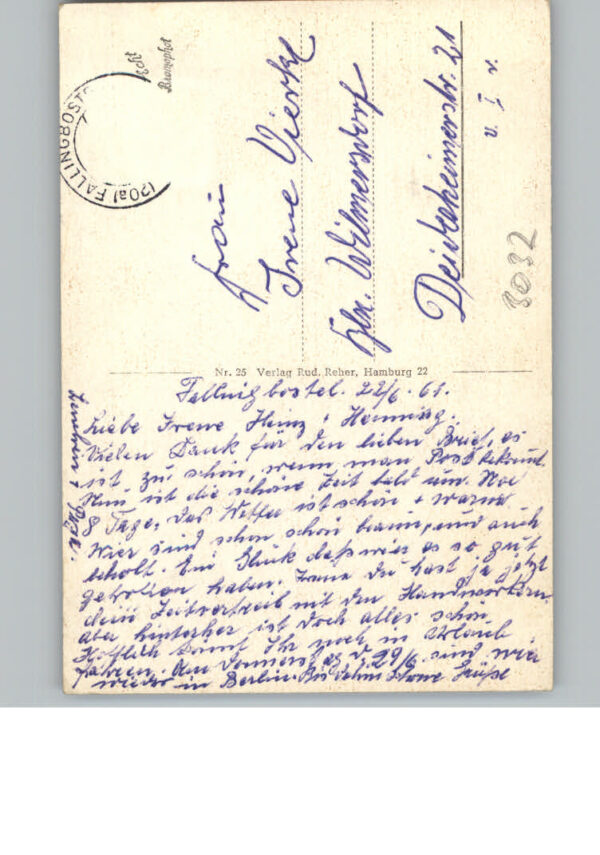 (20a) FALLINGBOST
Echt
Bromophot
Frau
Irene Gierke
Bln. Wilmersdorf
Deidesheimerstr. 21
v. I r.
8032
Nr. 25 Verlag Rud. Reher, Hamburg 22
Fallingbostel. 22/6. 61.
Liebe Irene, Heinz + Henning.
Vielen Dank für den lieben Brief, es
ist zu schön, wenn man Post bekommt.
Nun ist die schöne Zeit bald um. Noc
8 Tage, das Wetter ist schön + warm
Wier sind schon schön braun, und auch
erholt. Ein Glück dass wier es so gut
getroffen haben. Irene Du hast ja jetzt
dein Zeitvertreib mit den Handwerkern.
aber hinterher ist doch alles schön.
Hofflich könnt Ihr noch in Urlaub
fahren. Am Donnerstag d. 29/6. sind wier
wieder in Berlin. Bis dahin Grüße